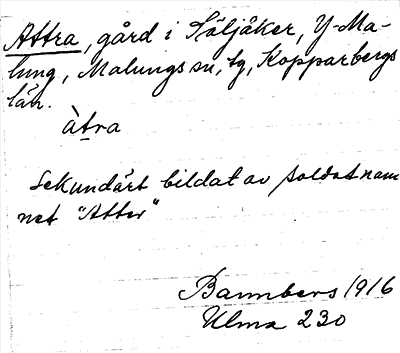 Attra, gård i Säljåker, Y-Ma-
lung, Malungs sn, tg, Kopparbergs
län.
àtra
Sekundärt bildat av soldatnam
net "Atter"
Bannbers 1916
Ulma 230